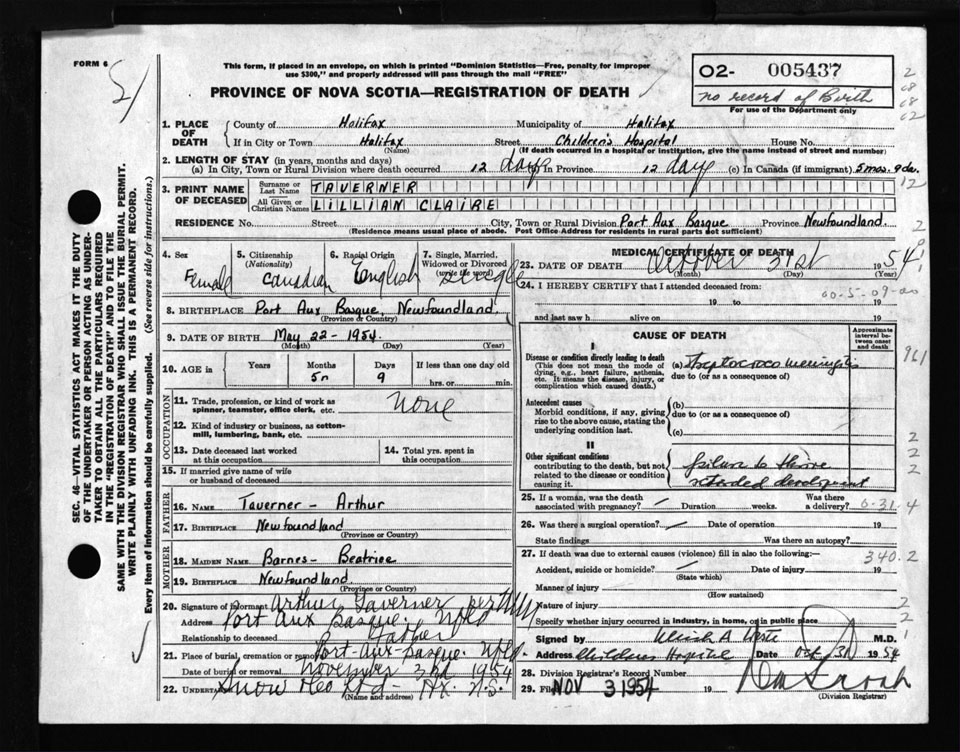 FORM 6
This form, if placed in an envelope, on which is printed "Dominion Statistics—Free, penalty for improper
use $300," and properly addressed will pass through the mail "FREE"
PROVINCE OF NOVA SCOTIA—REGISTRATION OF DEATH
O2- 005437
no record of Birth
For use of the Department only
SEC. 46—VITAL STATISTICS ACT MAKES IT THE DUTY
OF THE UNDERTAKER OR PERSON ACTING AS UNDER-
TAKER TO OBTAIN ALL THE PARTICULARS REQUIRED
IN THE "REGISTRATION OF DEATH" AND TO FILE THE
SAME WITH THE DIVISION REGISTRAR WHO SHALL ISSUE THE BURIAL PERMIT.
WRITE PLAINLY WITH UNFADING INK. THIS IS A PERMANENT RECORD.
Every item of information should be carefully supplied. (See reverse side for instructions.)
1. PLACE OF DEATH
County of Halifax Municipality of Halifax
If in City or Town Halifax Street Children's Hospital House No.
(Name) (If death occurred in a hospital or institution, give the name instead of street and number)
2. LENGTH OF STAY (in years, months and days)
(a) In City, Town or Rural Division where death occurred 12 days (b) In Province 12 days (c) In Canada (if immigrant) 5 mos. 9 da.
3. PRINT NAME OF DECEASED
Surname or Last Name TAVERNER
All Given or Christian Names LILLIAN CLAIRE
RESIDENCE No. Street City, Town or Rural Division Port Aux Basque Province Newfoundland.
(Residence means usual place of abode. Post Office Address for residents in rural parts not sufficient)
4. Sex Female
5. Citizenship (Nationality) Canadian
6. Racial Origin English
7. Single, Married, Widowed or Divorced (write the word) Single
8. BIRTHPLACE Port Aux Basque, Newfoundland.
(Province or Country)
9. DATE OF BIRTH May 22 - 1954.
(Month) (Day) (Year)
10. AGE in Years Months 5 Days 9 If less than one day
hrs. or min.
OCCUPATION
11. Trade, profession, or kind of work as
spinner, teamster, office clerk, etc. None
12. Kind of industry or business, as cotton-
mill, lumbering, bank, etc.
13. Date deceased last worked
at this occupation
14. Total yrs. spent in
this occupation
15. If married give name of wife
or husband of deceased
FATHER
16. NAME Taverner - Arthur
17. BIRTHPLACE Newfoundland
(Province or Country)
MOTHER
18. MAIDEN NAME Barnes - Beatrice
19. BIRTHPLACE Newfoundland.
(Province or Country)
20. Signature of informant Arthur Taverner per
Address Port Aux Basque. Nfld
Relationship to deceased Father
21. Place of burial, cremation or removal Port-Aux-Basque. Nfld.
Date of burial or removal November 3rd 1954
22. UNDERTAKER Snow Geo Ltd - Hx. N.S.
(Name and address)
MEDICAL CERTIFICATE OF DEATH
23. DATE OF DEATH October 31st 1954
(Month) (Day) (Year)
24. I HEREBY CERTIFY that I attended deceased from:
19 to 19
and last saw h alive on 19
00-5-09-00
CAUSE OF DEATH
Approximate interval between onset and death
I
Disease or condition directly leading to death
(This does not mean the mode of dying, e.g., heart failure, asthenia, etc. It means the disease, injury, or complication which caused death.)
(a) Streptococco meningitis
due to (or as a consequence of)
Antecedent causes
Morbid conditions, if any, giving rise to the above cause, stating the underlying condition last.
(b)
due to (or as a consequence of)
(c)
II
Other significant conditions
contributing to the death, but not related to the disease or condition causing it.
failure to thrive
retarded development
25. If a woman, was the death
associated with pregnancy? Duration weeks. Was there a delivery?
26. Was there a surgical operation? Date of operation 19
State findings Was there an autopsy?
27. If death was due to external causes (violence) fill in also the following:
340.2
Accident, suicide or homicide? Date of injury 19
(State which)
Manner of injury
(How sustained)
Nature of injury
Specify whether injury occurred in industry, in home, or in public place
Signed by M.D.
Address Childrens Hospital Date Oct 31 1954
28. Division Registrar's Record Number
29. Filed NOV 3 1954 19
(Division Registrar)